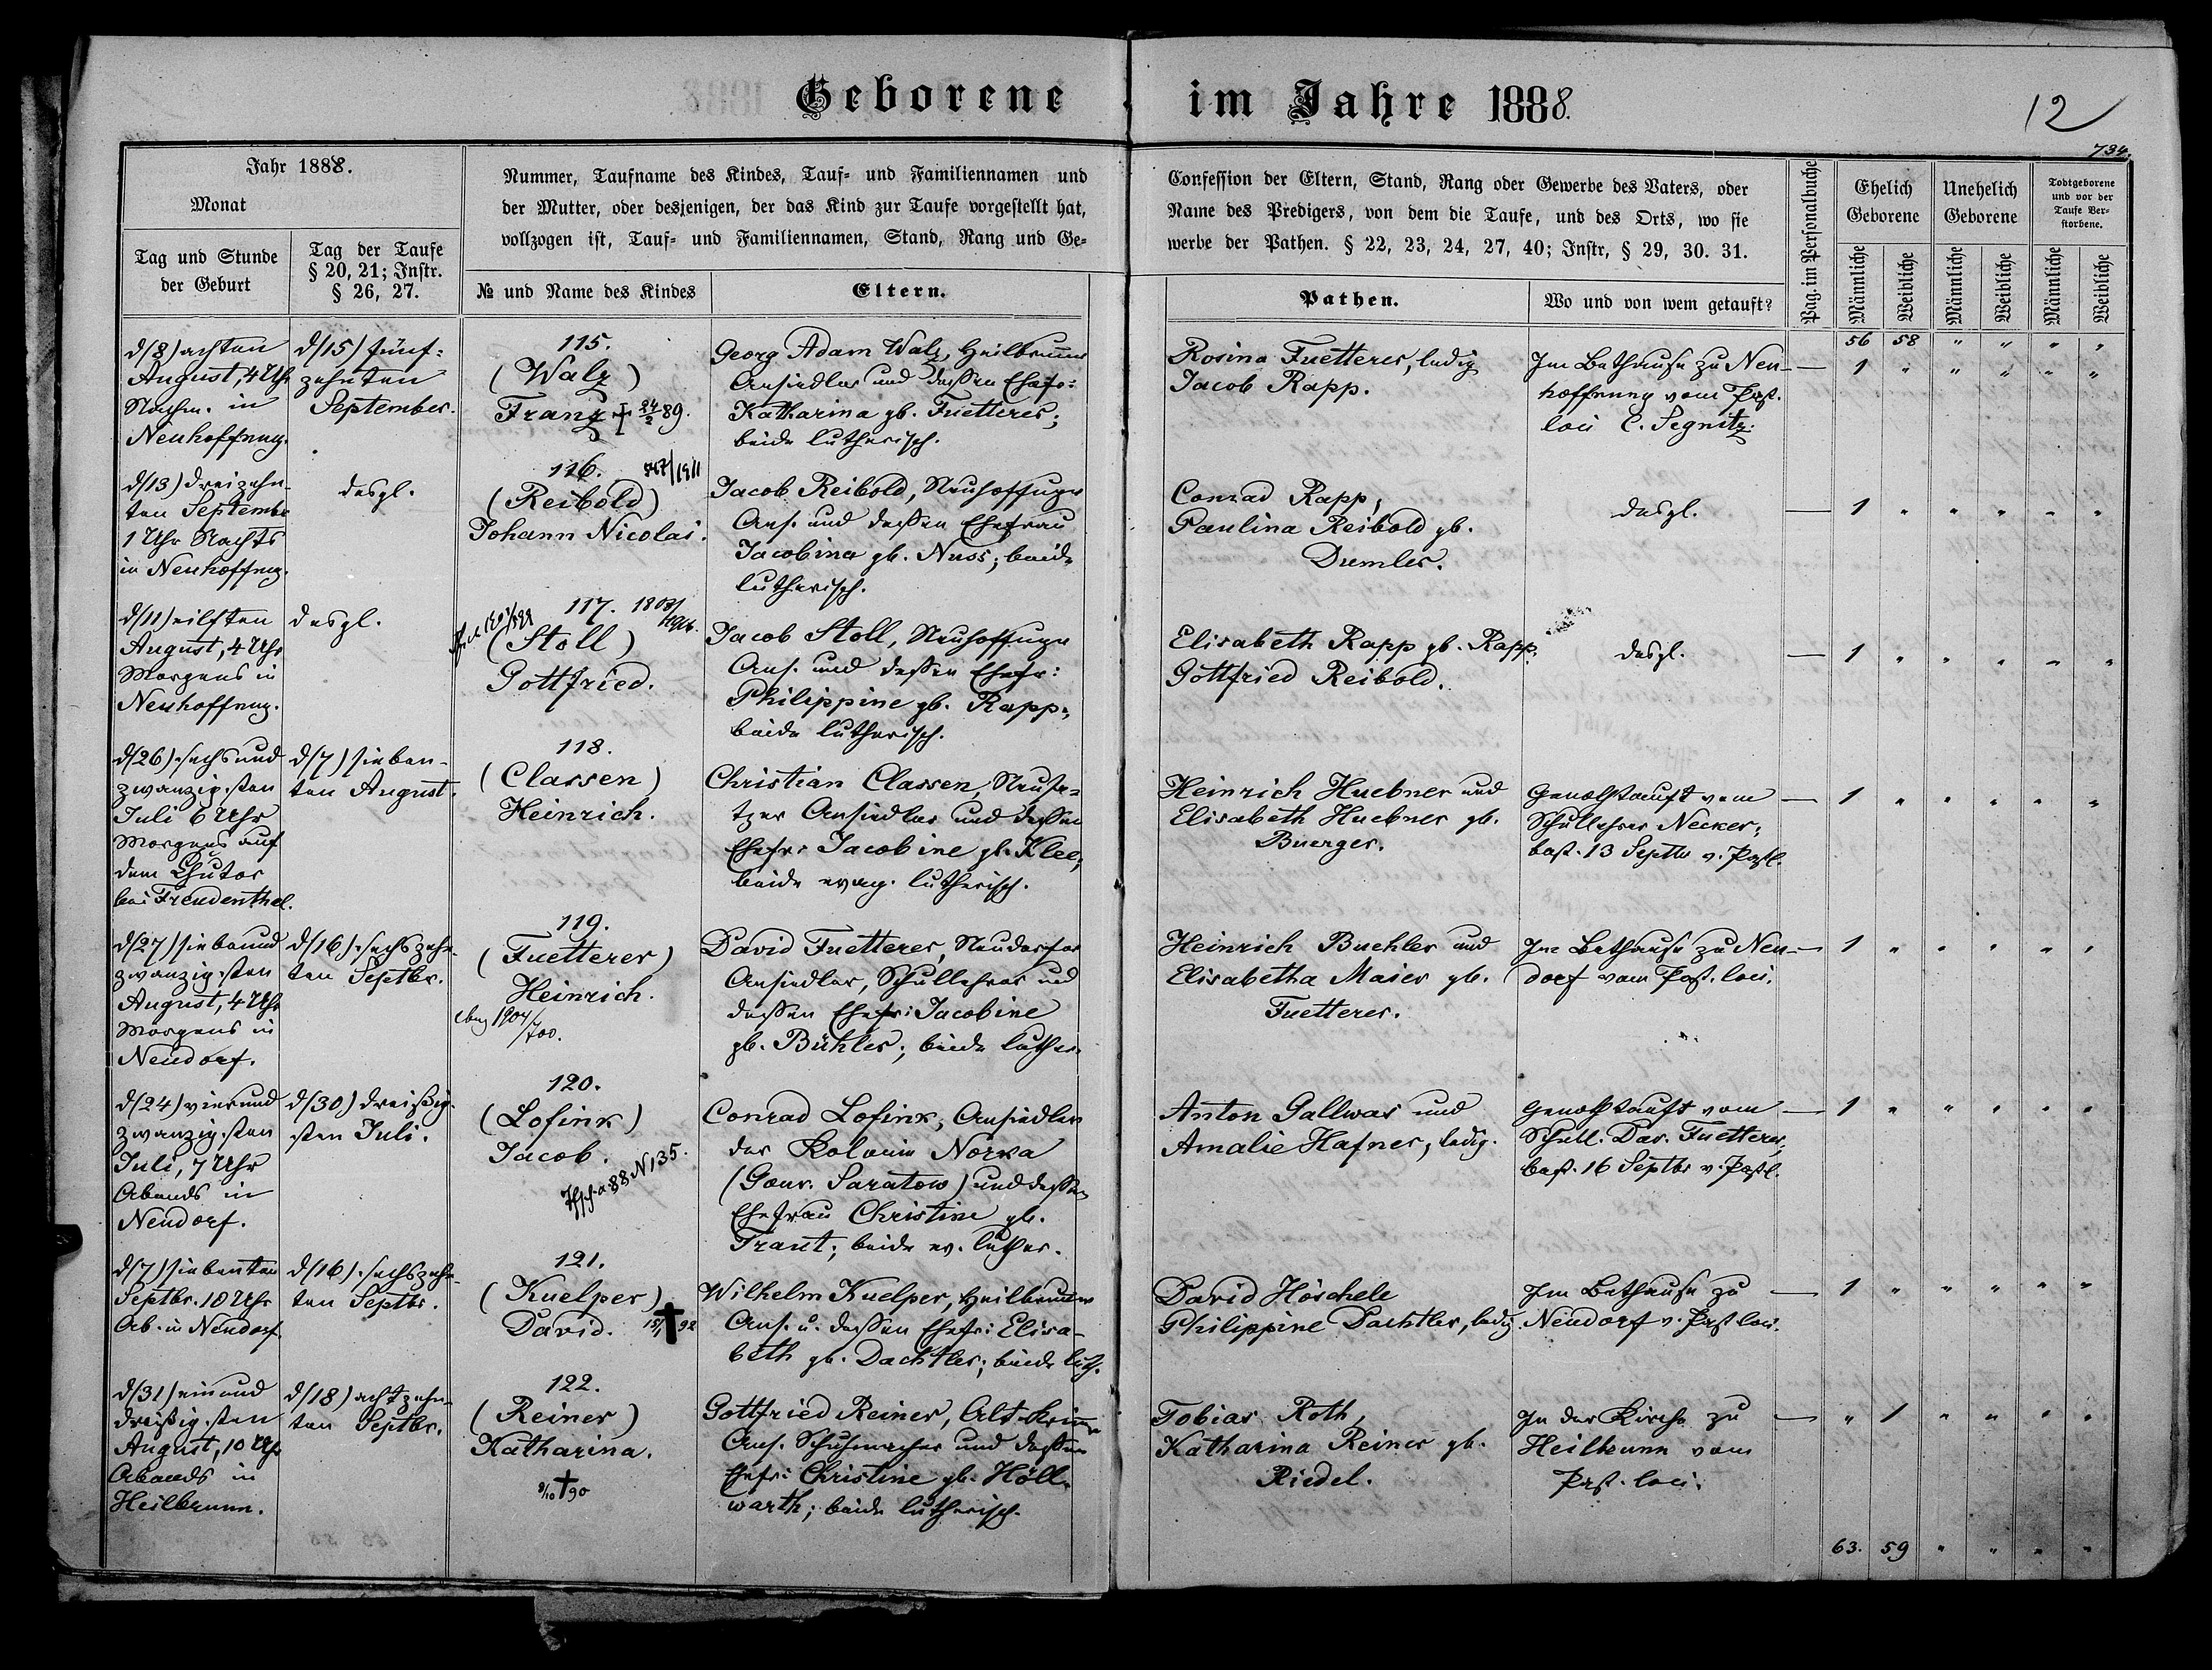 Geborene im Jahre 1888.
12
734.
Jahr 1888.
Monat
Tag und Stunde
der Geburt
Tag der Taufe
§ 20, 21; Instr.
§ 26, 27.
Nummer, Taufname des Kindes, Tauf- und Familiennamen und
der Mutter, oder desjenigen, der das Kind zur Taufe vorgestellt hat,
vollzogen ist, Tauf- und Familiennamen, Stand, Rang und Ge-
№ und Name des Kindes
Eltern.
Confession der Eltern, Stand, Rang oder Gewerbe des Vaters, oder
Name des Predigers, von dem die Taufe, und des Orts, wo sie
werbe der Pathen. § 22, 23, 24, 27, 40; Instr, § 29, 30. 31.
Pathen.
Wo und von wem getauft?
Pag. im Personalbuche
Ehelich
Geborene
Unehelich
Geborene
Todtgeborene
und vor der
Taufe Ver-
storbene.
Männliche
Weibliche
Männliche
Weibliche
Männliche
Weibliche
56 58 " " " "
d/8) achten
August, 4 Uhr
Nachm. in
Neuhoffnug.
d/15) fünf-
zehnten
September.
115.
(Walz)
Franz † 24/2 89.
Georg Adam Walz, Heilbrunner
Ansiedler und dessen Ehefr:
Katharina gb. Fuetterer;
beide lutherisch.
Rosina Fuetterer, ledig
Jacob Rapp.
Im Bethause zu Neu-
hoffnung vom Past.
loci C. Segnitz.
— 1 " " " " "
d/13) dreizehn-
ten Septembr
1 Uhr Nachts
in Neuhoffnug.
desgl.
116.
/1911
(Reibold)
Johann Nicolai.
Jacob Reibold, Neuhoffnugr
Ans. und dessen Ehefrau
Jacobina gb. Nuss; beide
lutherisch.
Conrad Rapp,
Paulina Reibold gb.
Duemler.
desgl.
— 1 " " " " "
d/11) eilften
August, 4 Uhr
Morgens in
Neuhoffnug.
desgl.
117.
(Stoll)
Gottfried.
Jacob Stoll, Neuhoffnugr
Ans. und dessen Ehefr:
Philippine gb. Rapp;
beide lutherisch.
Elisabeth Rapp gb. Rapp.
Gottfried Reibold.
desgl.
— 1 " " " " "
d/26) sechsund
zwanzigsten
Juli 6 Uhr
Morgens auf
dem Chutor
bei Freudenthal.
d/7) sieben-
ten August.
118.
(Classen)
Heinrich.
Christian Classen, Neusa-
tzer Ansiedler und dessen
Ehefr: Jacobine gb. Klee;
beide evag. lutherisch.
Heinrich Huebner und
Elisabeth Huebner gb.
Buerger.
Genothtauft vom
Schullehrer Necker;
best. 13 Septbr v. Past l.
— 1 " " " " "
d/27) siebenund
zwanzigsten
August, 4 Uhr
Morgens in
Neudorf.
d/16) sechszehn-
ten Septbr.
119.
(Fuetterer)
Heinrich.
1904/700.
David Fuetterer, Neudorfer
Ansiedler, Schullehrer und
dessen Ehefr: Jacobine
gb. Bühler; beide luther.
Heinrich Buehler und
Elisabetha Maier gb.
Fuetterer.
Im Bethause zu Neu-
dorf vom Past. loci.
— 1 " " " " "
d/24) vierund
zwanzigsten
Juli, 7 Uhr
Abends in
Neudorf.
d/30) dreißig-
sten Juli.
120.
(Lofink)
Jacob.
88 N 135.
Conrad Lofink, Ansiedler
der Kolonie Norka
(Gouv. Saratow) und dessen
Ehefrau Christine gb.
Traut; beide ev. luther.
Anton Gallwas und
Amalie Hafner, ledig.
Genothtauft vom
Schull. Dav. Fuetterer,
best. 16 Septbr v. Past l.
— 1 " " " " "
d/7) siebenten
Septbr. 10 Uhr
Ab. in Neudorf
d/16) sechszehn-
ten Septbr.
121.
(Kuelper)
David. 15/1 † 92
Wilhelm Kuelper, Heilbrunner
Ans. u. dessen Ehefr: Elisa-
beth gb. Dachtler; beide luth.
David Höschele
Philippine Dachtler, ledig.
Im Bethause zu
Neudorf v. Past loci.
— 1 " " " " "
d/31) einund
dreißigsten
August, 10 Uhr
Abends in
Heilbrunn.
d/18) achtzehn-
ten Septbr.
122.
(Reiner)
Katharina.
9/10 † 90
Gottfried Reiner, Alt-Krim
Ans. Schuhmacher und dessen
Ehefr: Christine gb. Höll-
warth; beide lutherisch.
Tobias Roth,
Katharina Reiner gb.
Riedel.
In der Kirche zu
Heilbrunn vom
Past. loci.
— " 1 " " " "
63. 59 " " " "